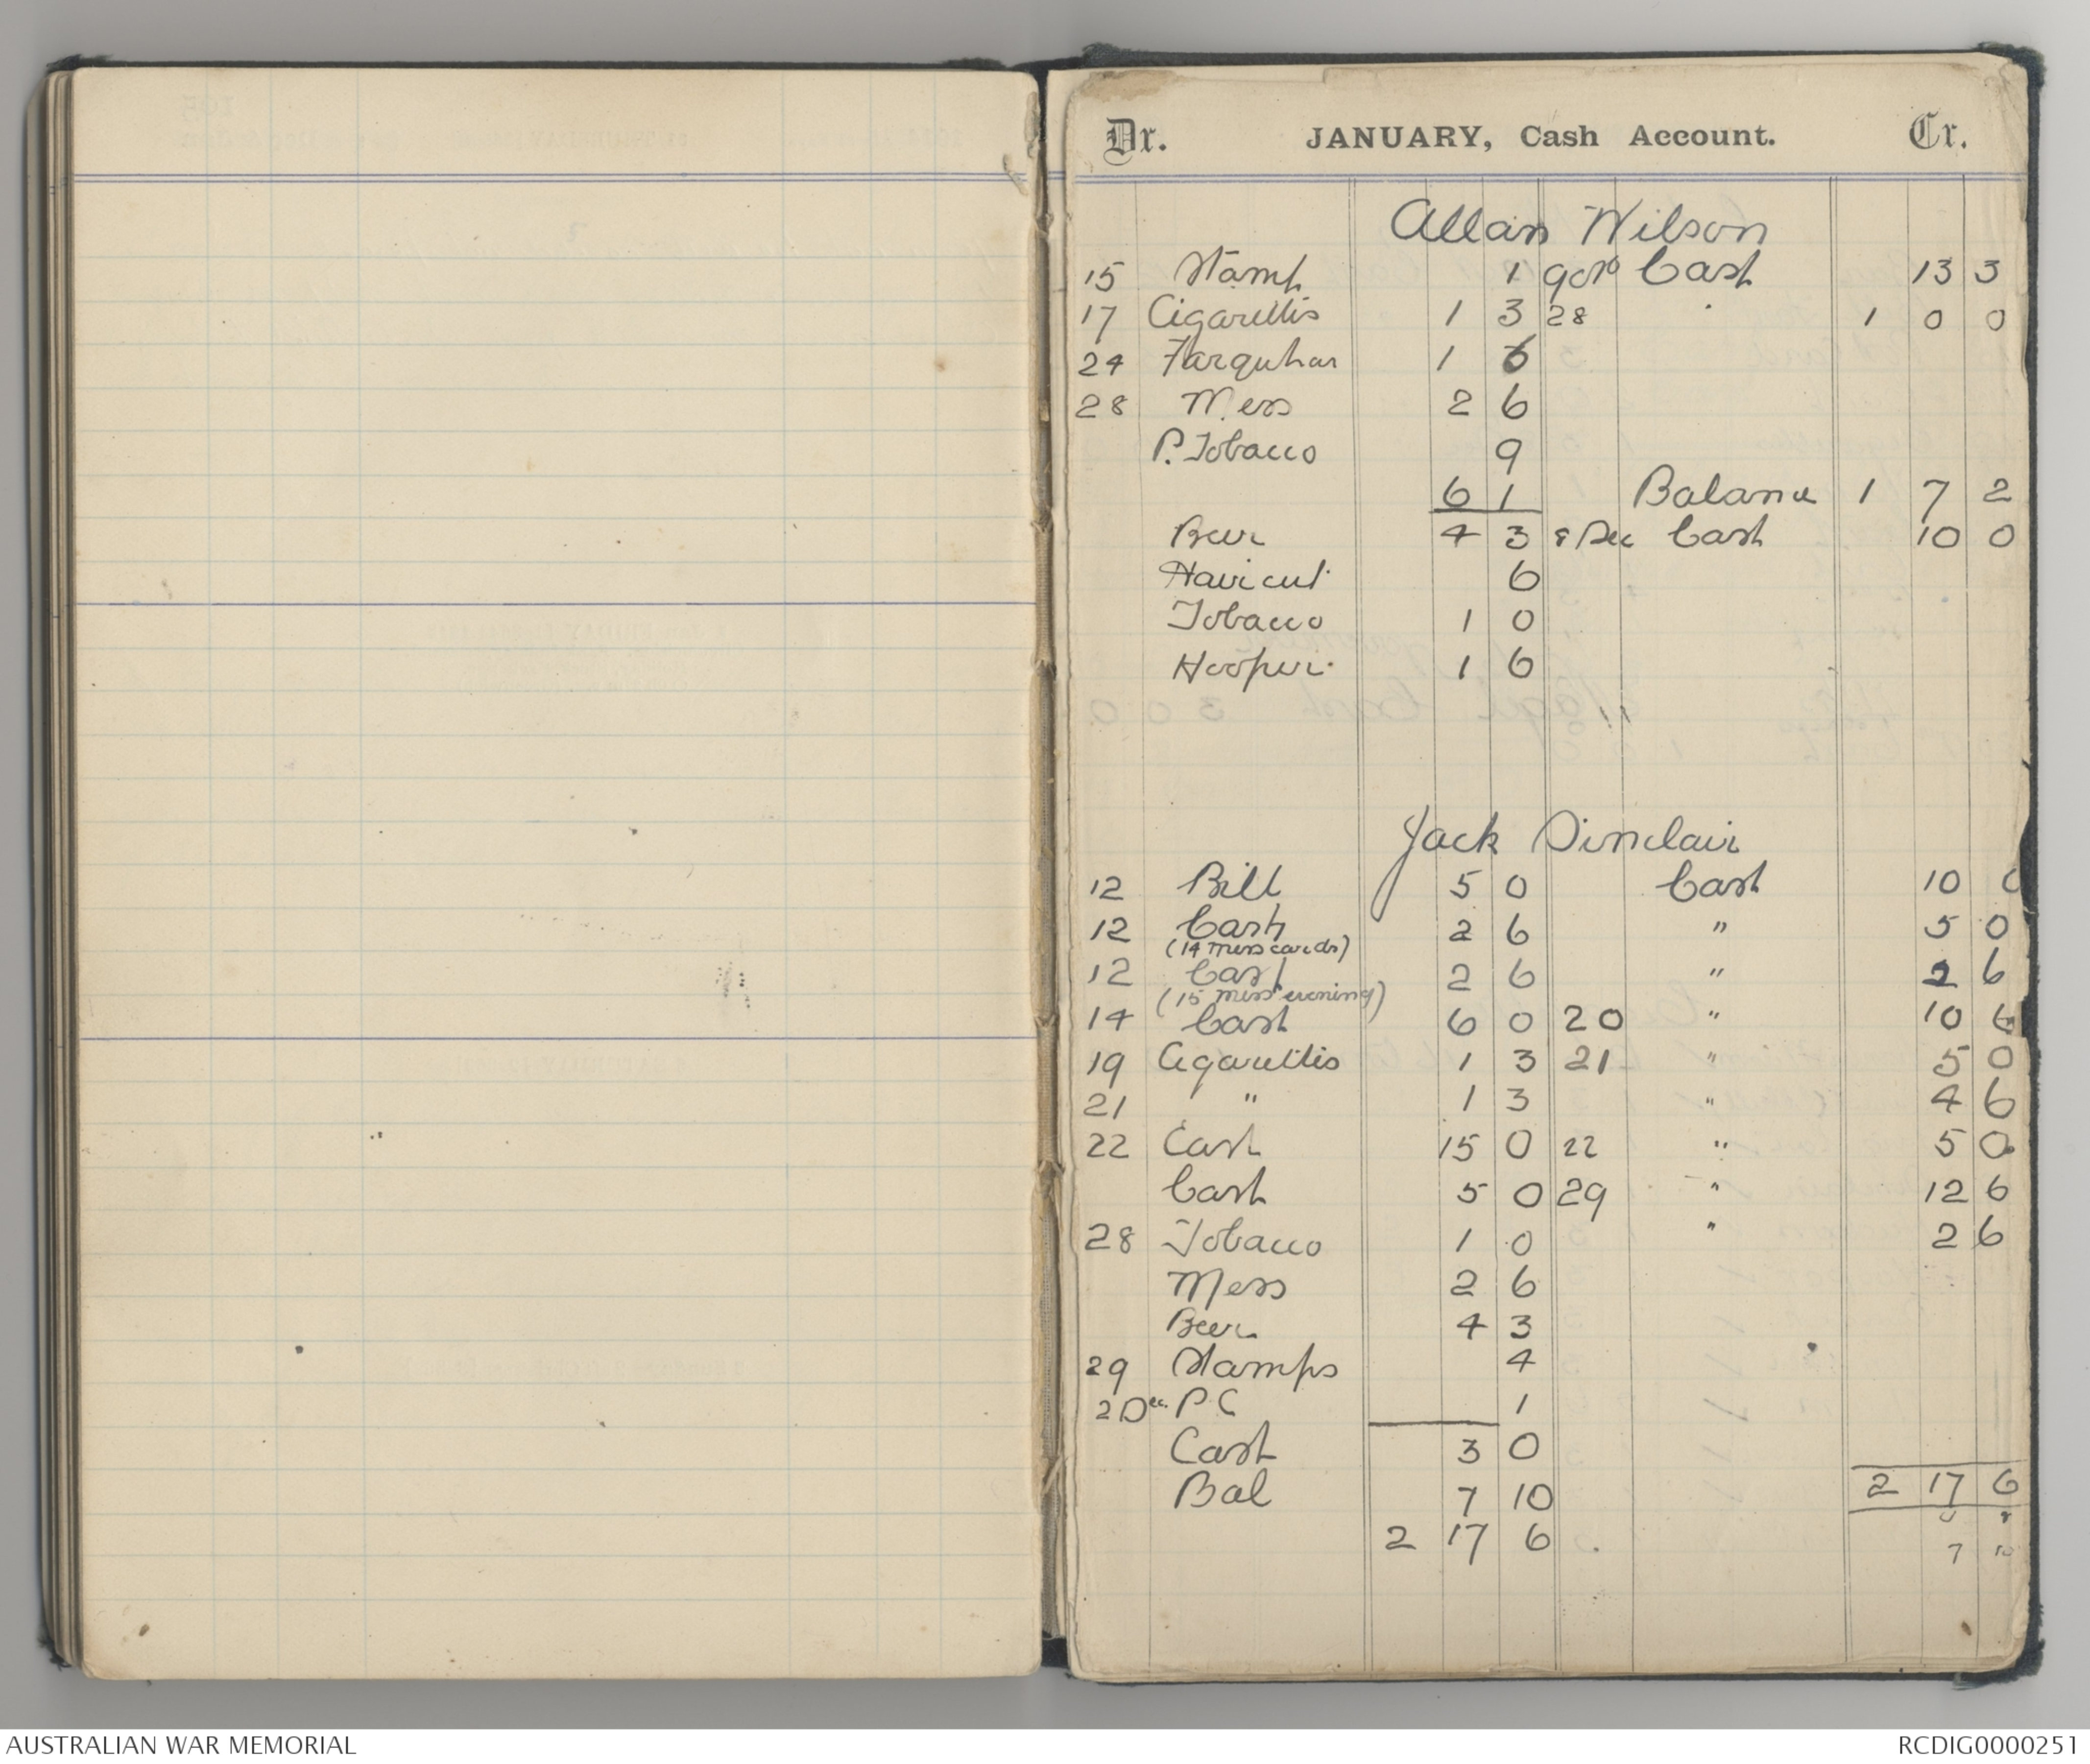 Dr. JANUARY, Cash Account. Cr.
Allan Wilson
15 Stamp 1 Cash 13 3
17 Cigarettes 1 3 28 " 1 0 0
24 Farquhar 1 6
28 Mess 2 6
P. Tobacco 9
6 1 Balance 1 7 2
Beer 4 3 8 Dec Cash 10 0
Hair cut 6
Tobacco 1 0
Hooper 1 6
Jack Sinclair
12 Bill 5 0 Cash 10 0
12 Cash 2 6 " 5 0
(14 mess cards)
12 Cash 2 6 " 2 6
(15 mess evening)
14 Cash 6 0 20 " 10 6
19 Cigarettes 1 3 21 " 5 0
21 " 1 3 " 4 6
22 Cash 15 0 22 " 5 0
Cash 5 0 29 " 12 6
28 Tobacco 1 0 " 2 6
Mess 2 6
Beer 4 3
29 Stamps 4
2 Dec. P C 1
Cash 3 0
Bal 7 10 2 17 6
2 17 6 7 10
AUSTRALIAN WAR MEMORIAL RCDIG0000251